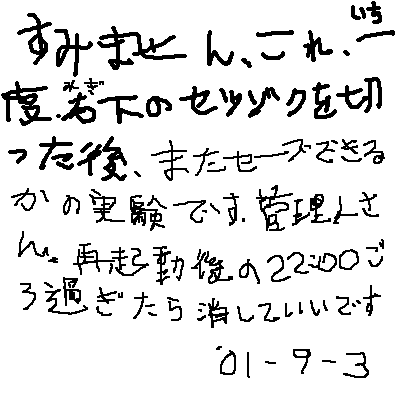 いち
すみません、これ、一
みぎ
度、右下のセツゾクを切
った後、またセーブできる
かの実験です。管理人さ
ん、再起動後の22:00ご
ろ過ぎたら消していいです
'01-9-3